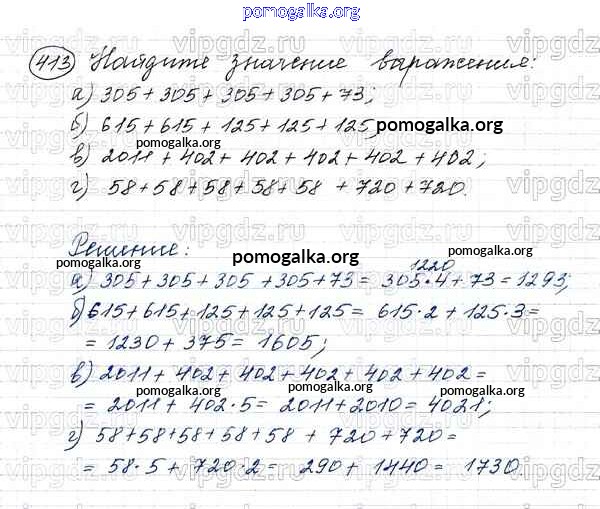 pomogalka.org
413 Найдите значение выражения:
а) 305 + 305 + 305 + 305 + 73;
б) 615 + 615 + 125 + 125 + 125;
pomogalka.org
в) 2011 + 402 + 402 + 402 + 402 + 402;
г) 58 + 58 + 58 + 58 + 58 + 720 + 720.
Решение:
pomogalka.org pomogalka.org pomogalka.org
1220
а) 305 + 305 + 305 + 305 + 73 = 305 · 4 + 73 = 1293;
б) 615 + 615 + 125 + 125 + 125 = 615 · 2 + 125 · 3 =
= 1230 + 375 = 1605;
pomogalka.org
в) 2011 + 402 + 402 + 402 + 402 + 402 =
pomogalka.org
= 2011 + 402 · 5 = 2011 + 2010 = 4021;
г) 58 + 58 + 58 + 58 + 58 + 720 + 720 =
= 58 · 5 + 720 · 2 = 290 + 1440 = 1730.